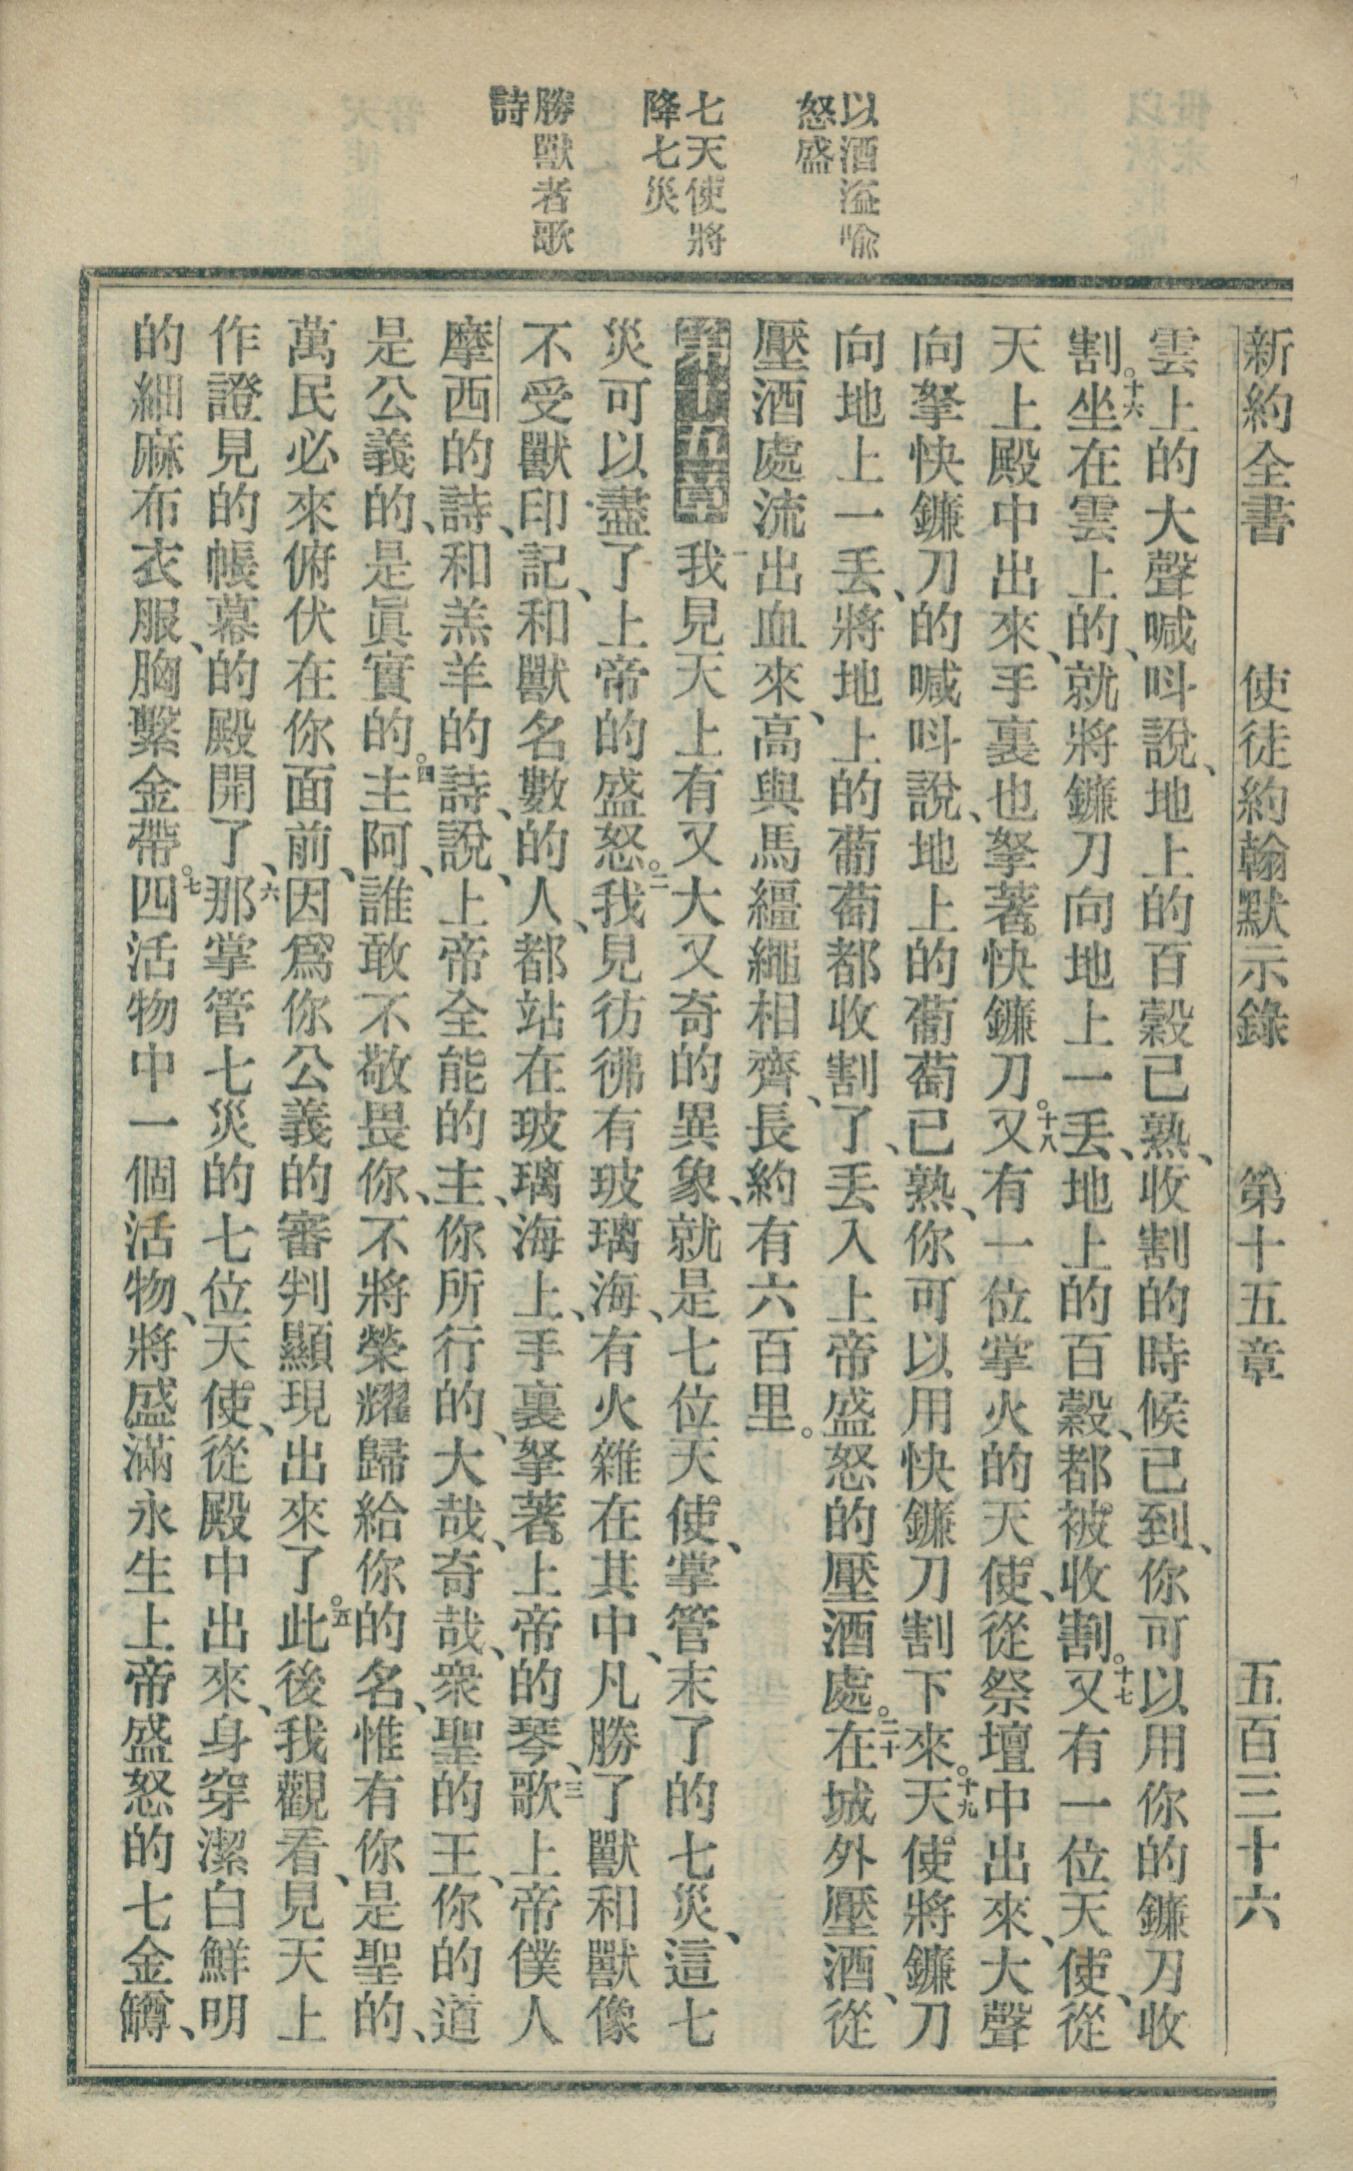 新約全書　使徒約翰默示錄　第十五章　五百三十六
以酒溢喻
怒盛
七天使將
降七災
勝獸者歌
詩
雲上的大聲喊呌說、地上的百穀已熟、收割的時候已到、你可以用你的鐮刀收
割。十六坐在雲上的、就將鐮刀向地上一丢、地上的百穀、都被收割。十七又有一位天使、從
天上殿中出來、手裏也拏著快鐮刀。十八又有一位掌火的天使、從祭壇中出來、大聲
向拏快鐮刀的喊呌說、地上的葡萄已熟、你可以用快鐮刀割下來。十九天使將鐮刀
向地上一丢、將地上的葡萄都收割了、丢入上帝盛怒的壓酒處。二十在城外壓酒、從
壓酒處流出血來、高與馬繮繩相齊、長約有六百里。
第十五章　我見天上有又大又奇的異象、就是七位天使、掌管末了的七災、這七
災可以盡了上帝的盛怒。二我見彷彿有玻璃海、有火雜在其中、凡勝了獸和獸像
不受獸印記、和獸名數的人、都站在玻璃海上、手裏拏著上帝的琴、三歌上帝僕人
摩西的詩、和羔羊的詩、說、上帝全能的主、你所行的、大哉、奇哉、衆聖的王、你的道
是公義的、是眞實的。四主阿、誰敢不敬畏你、不將榮耀歸給你的名、惟有你是聖的、
萬民必來俯伏在你面前、因爲你公義的審判顯現出來了。五此後我觀看、見天上
作證見的帳幕的殿開了、六那掌管七災的七位天使、從殿中出來、身穿潔白鮮明
的細麻布衣服、胸繫金帶。七四活物中一個活物、將盛滿永生上帝盛怒的七金罇、